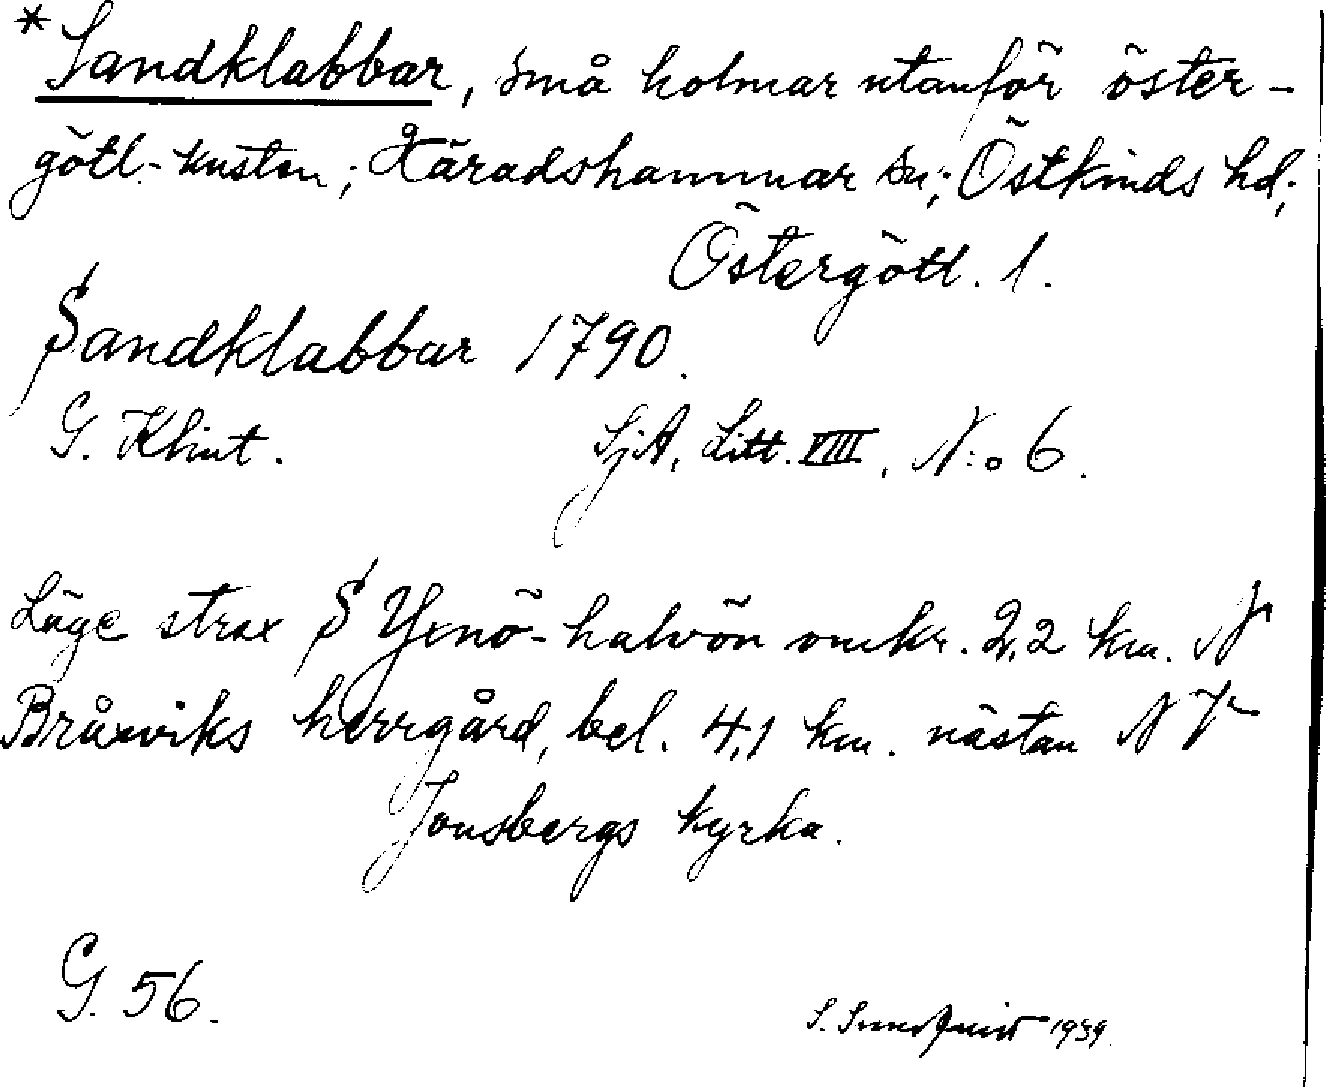 * Sandklabbar, små holmar utanför öster-
götl.-kusten; Häradshammar sn; Östkinds hd;
Östergötl. l.
Sandklabbar 1790.
G. Klint. SjA, Litt. VIII, N:o 6.
Läge strax S Yxnö-halvön omkr. 2,2 km. N
Bråxviks herrgård, bel. 4,1 km. nästan NV
Jonsbergs kyrka.
G. 56.
S. Sundquist 1939.